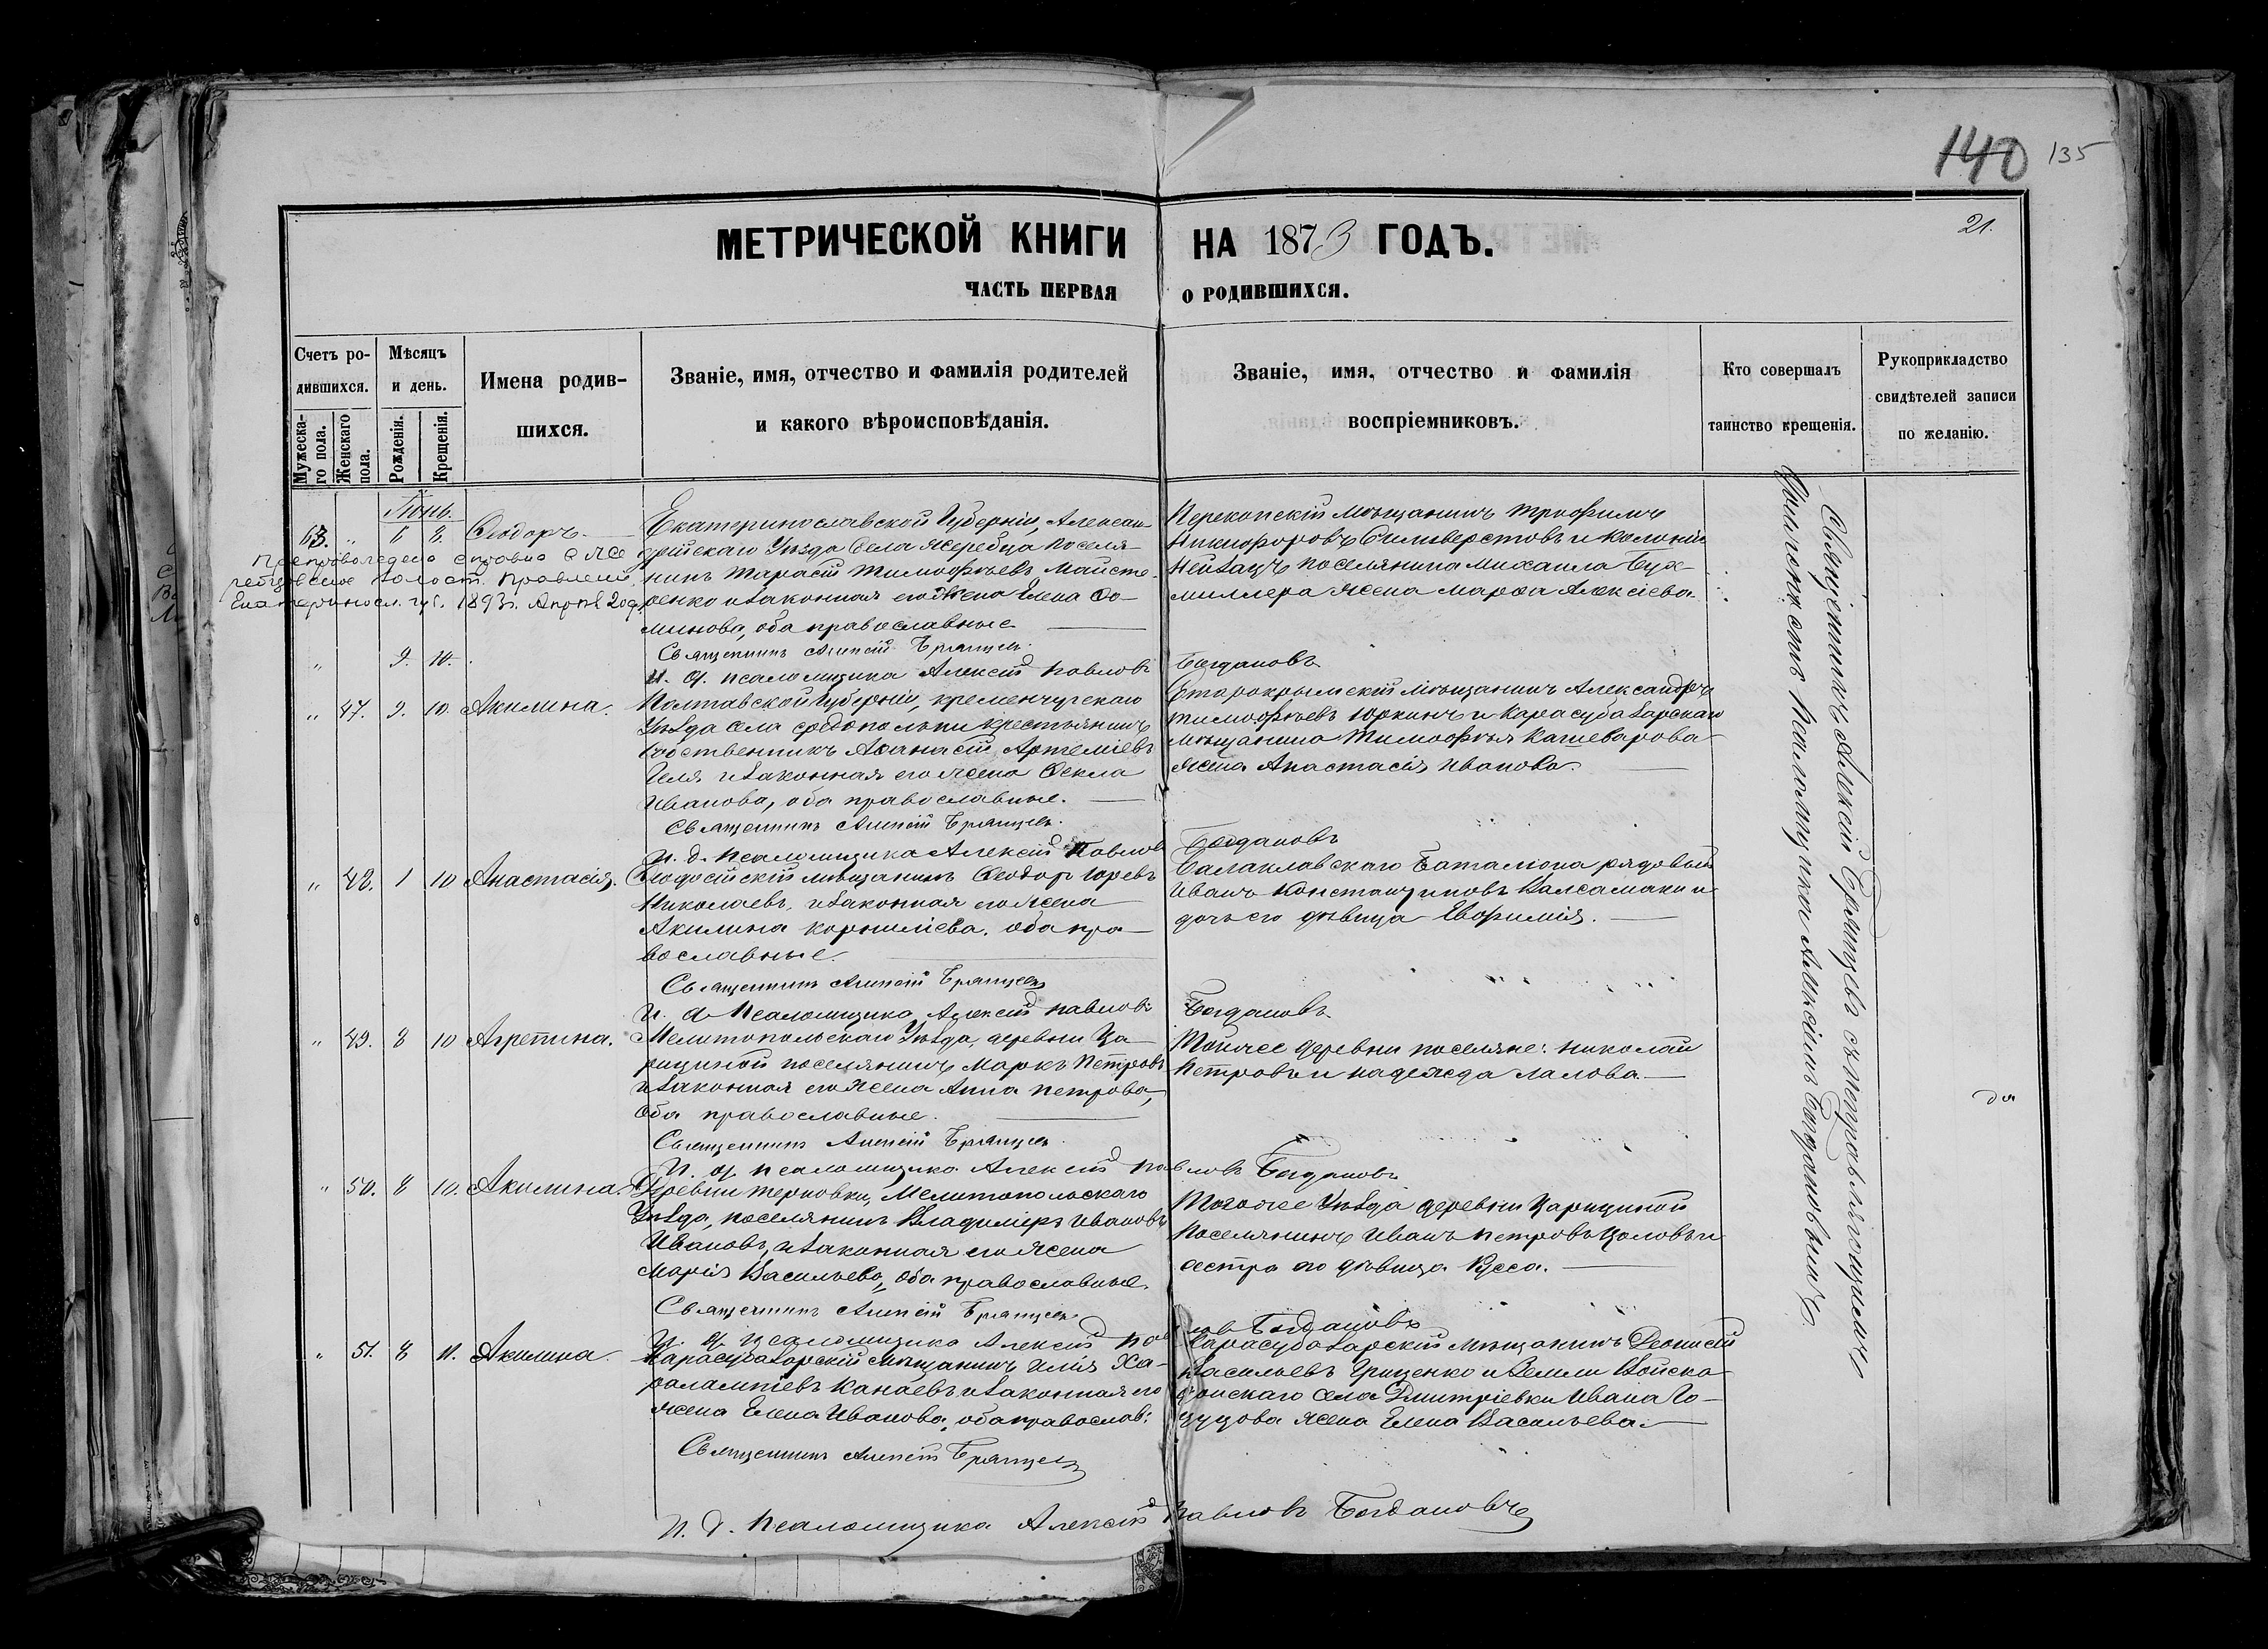 140 135
21.
МЕТРИЧЕСКОЙ КНИГИ НА 1873 ГОДЪ.
ЧАСТЬ ПЕРВАЯ О РОДИВШИХСЯ.
Счетъ ро-
дившихся.
Мужеска-
го пола.
Женскаго
пола.
Мѣсяцъ
и день.
Рожденія.
Крещенія.
Имена родив-
шихся.
Званіе, имя, отчество и фамилія родителей
и какого вѣроисповѣданія.
Званіе, имя, отчество и фамилія
воспріемниковъ.
Кто совершалъ
таинство крещенія.
Рукоприкладство
свидѣтелей записи
по желанію.
Іюнь.
63. " 6 8. Ѳеодоръ.
Екатеринославской Губерніи, Алексан-
дрійскаго Уѣзда Села Жеребца поселя-
нинъ Тарасій Тимофѣевъ Майсте-
ренко и законная его жена Елена Ѳо-
минова, оба православные
Священникъ Алексій Брянцевъ.
Перекопскій мѣщанинъ Трофимъ
Никифоровъ Сильверстовъ и колоніи
Нейзацъ поселянина Михаила Бух-
миллера жена Марѳа Алексіева.
Препровождена справка в Же
ребцовское волост. Правленіе
Екатериносл. губ. 1893г. Апрѣл 20 д.
" 9. 10.
И. д. псаломщика Алексій Павловъ Богдановъ
" 47. 9. 10. Акилина.
Полтавской Губерніи, Кременчугскаго
Уѣзда села крестьянинъ
собственникъ Аѳанасій Артеміевъ
Геля и законная его жена Ѳекла
Иванова, оба православные.
Священникъ Алексій Брянцевъ.
Старокрымскій мѣщанинъ Александръ
Тимофѣевъ Юркинъ и Карасубазарскаго
мѣщанина Тимофѣя Кашеварова
жена Анастасія Иванова.
И. д. псаломщика Алексій Павловъ Богдановъ
" 48. 1 10 Анастасія.
Ѳеодосійскій мѣщанинъ Ѳеодоръ Юрьевъ
Николаевъ, и законная его жена
Акилина Корниліева, оба пра-
вославные.
Священникъ Алексій Брянцевъ
Балаклавскаго Баталіона рядовый
Иванъ Константиновъ Валсамаки и
дочь его дѣвица Евфимія.
И. д. Псаломщика Алексій Павловъ Богдановъ
" 49. 8 10 Агрепина.
Мелитопольскаго Уѣзда, деревни Ца-
рициной поселянинъ Маркъ Петровъ
и законная его жена Анна Петрова,
оба православные.
Священникъ Алексій Брянцевъ.
Тойже деревни поселяне: Николай
Петровъ и Надежда Лалова.
И. д. псаломщика Алексій Павловъ Богдановъ
" 50. 8 10. Акилина.
Деревни Терновки, Мелитопольскаго
Уѣзда, поселянинъ Владиміръ Ивановъ
Ивановъ, и законная его жена
Марія Васильева, оба православные.
Священникъ Алексій Брянцевъ
Тогоже Уѣзда деревни Царициной
Поселянинъ Иванъ Петровъ Цоловъ и
сестра его дѣвица
И. д. псаломщика Алексій Павловъ Богдановъ
" 51. 8 11. Акилина.
Карасубазарскій мѣщанинъ Илія Ха-
ралампіевъ Канаевъ и законная его
жена Елена Иванова, оба православ:
Священникъ Алексій Брянцевъ
Карасубазарскій мѣщанинъ Діонисій
Васильевъ Гриценко и Земли Войска
Донскаго села Дмитріевки Ивана Го-
цуцова жена Елена Васильева.
И. д. Псаломщика Алексій Павловъ Богдановъ
Священникъ Алексій Брянцевъ съ
псаломщикомъ Алексіемъ Богдановымъ.